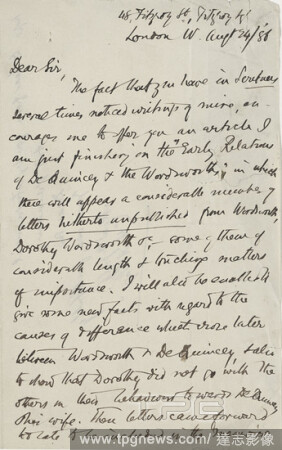 48 Fitzroy St., Fitzroy Sq
London W. Augt 24/86
Dear Sir,
The fact that you have in
several times noticed writings of mine, en-
courages me to offer you an article I
am just finishing on the "Early Relations
of De Quincey & the Wordsworths," in which
there will appear a considerable number of
letters hitherto unpublished from Wordsworth,
Dorothy Wordsworth &c, some of them of
considerable length & touching matters
of importance. I will also be enabled to
give some new facts with regard to the
causes of difference which arose later
between Wordsworth & De Quincey, & also
to show that Dorothy did not go with the
others in their behaviour towards De Quincey
& his wife. These letters came forward
too late
www.tpgnews.com/ 達志影像